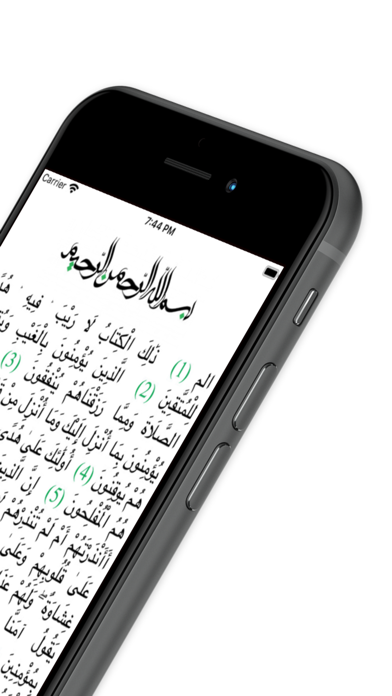 Carrier
7:44 PM
بسم الله الرحمن الرحيم
الم (1) ذَلِكَ الْكِتَابُ لَا رَيْبَ ۛ فِيهِ ۛ
لِلْمُتَّقِينَ (2) الَّذِينَ يُؤْمِنُونَ بِالْغَيْبِ
الصَّلَاةَ وَمِمَّا رَزَقْنَاهُمْ يُنْفِقُونَ (3)
يُؤْمِنُونَ بِمَا أُنْزِلَ إِلَيْكَ وَمَا أُنْزِلَ مِنْ
هُمْ يُوقِنُونَ (4) أُولَئِكَ عَلَى هُدًى
هُمُ الْمُفْلِحُونَ (5) إِنَّ الَّذِينَ
أَأَنْذَرْتَهُمْ أَمْ لَمْ تُنْذِرْهُمْ
عَلَى قُلُوبِهِمْ وَعَلَى
غِشَاوَةٌ وَلَهُمْ
يَقُولُ آمَنَّا
بِمُؤْمِنِينَ